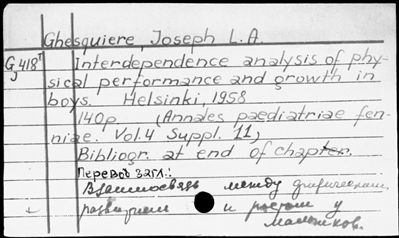 Ghesquiere, Joseph L.A.
G 418 Interdependence analysis of phy-
sical performance and growth in
boys. Helsinki, 1958
140p. (Annales paediatriae fen-
niae. Vol. 4 Suppl. 11)
Bibliogr. at end of chapter.
Перевод загл.:
Взаимосвязь между физическим
развитием и ростом у
мальчиков.